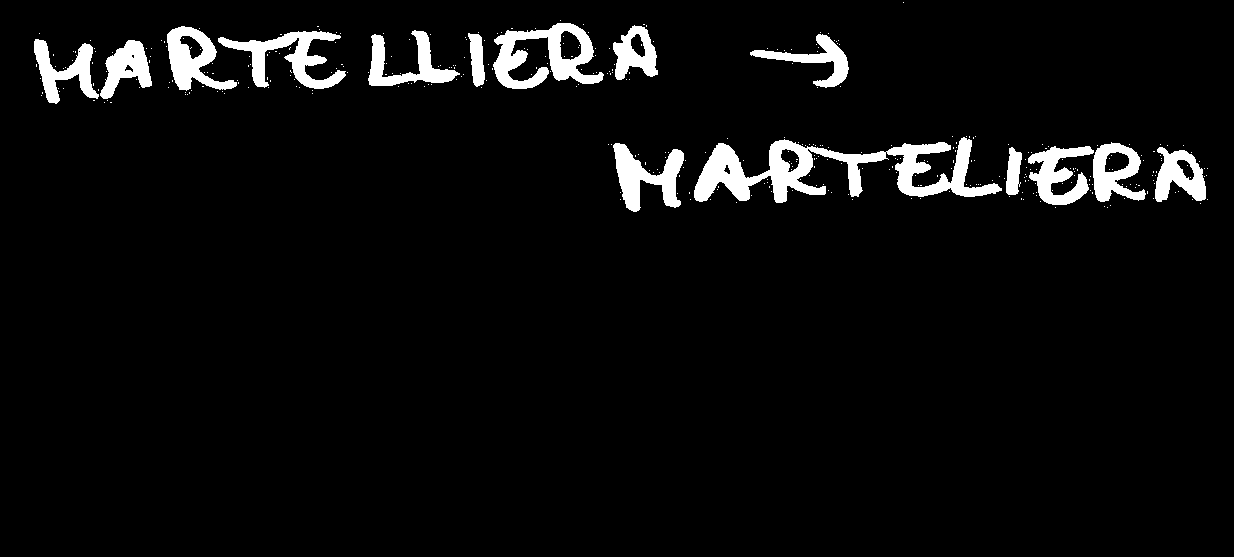 MARTELLIERA →
MARTELIERA